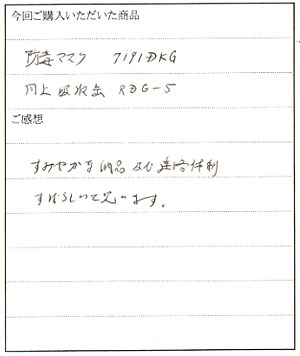 今回ご購入いただいた商品
防毒マスク 7191DKG
同上吸収缶 RDG-5
ご感想
すみやかな納品及び連絡体制
すばらしいと思います。